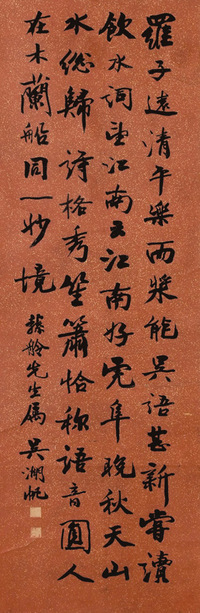 羅子遠清平樂兩槳能吳語甚新嘗讀
飲水詞望江南云江南好虎阜晚秋天山
水總歸詩格秀笙簫恰稱語音圓人
在木蘭船同一妙境
舲先生屬 吳湖帆